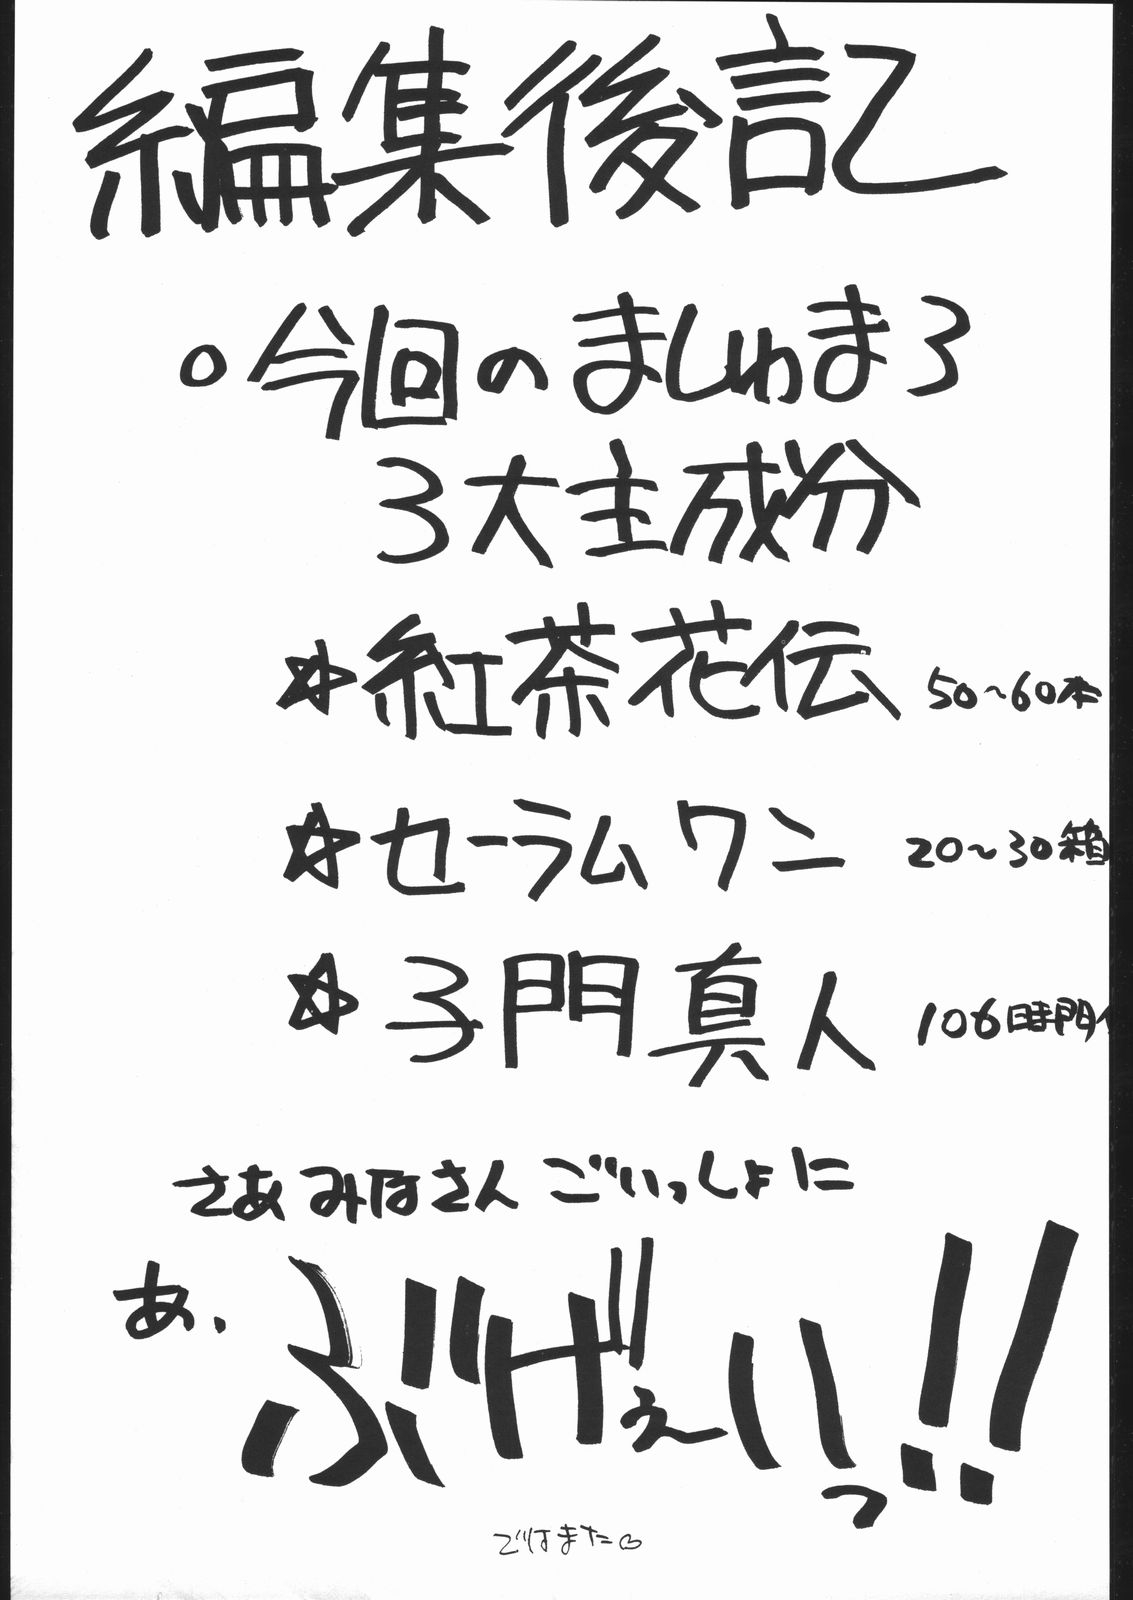 編集後記
○今回のましゅまろ
3大主成分
☆紅茶花伝 50～60本
☆セーラムワン 20～30箱
☆子門真人 106時間
さあみなさんごいっしょに
あ、ぶげぇいっ!!
ではまた♡